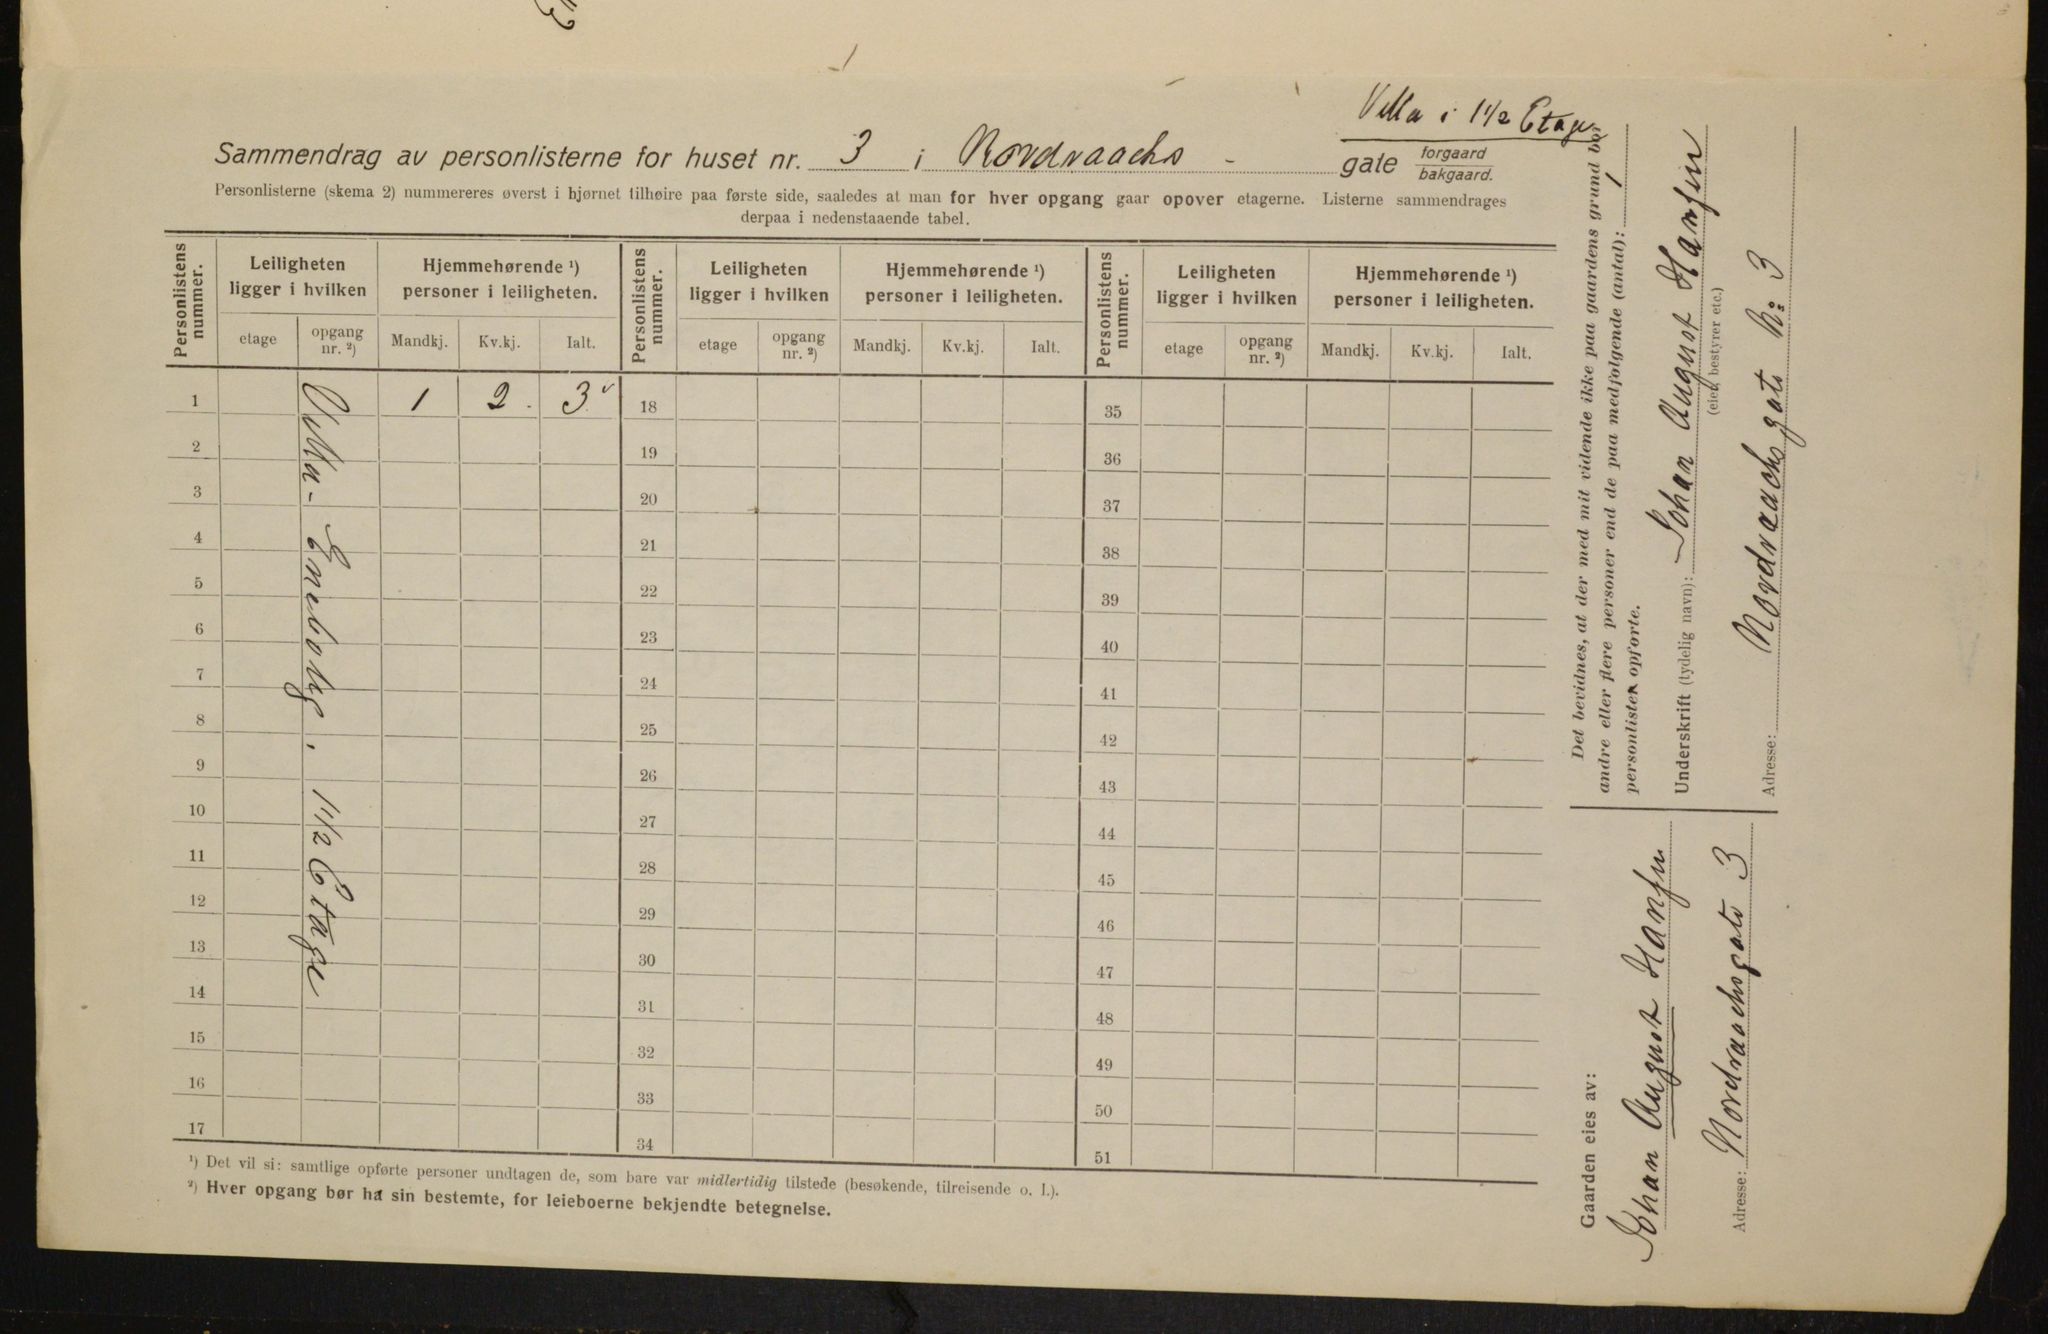 Villa i 1 1/2 Etage
Sammendrag av personlisterne for huset nr. 3 i Nordraachs - gate forgaard bakgaard.
Personlisterne (skema 2) nummereres øverst i hjørnet tilhøire paa første side, saaledes at man for hver opgang gaar opover etagerne. Listerne sammendrages
derpaa i nedenstaaende tabel.
Personlistens nummer.
Leiligheten ligger i hvilken
etage
opgang nr. ²)
Hjemmehørende ¹) personer i leiligheten.
Mandkj.
Kv.kj.
Ialt.
Personlistens nummer.
Leiligheten ligger i hvilken
etage
opgang nr. ²)
Hjemmehørende ¹) personer i leiligheten.
Mandkj.
Kv.kj.
Ialt.
Personlistens nummer.
Leiligheten ligger i hvilken
etage
opgang nr. ²)
Hjemmehørende ¹) personer i leiligheten.
Mandkj.
Kv.kj.
Ialt.
1 1 2 3 18 35
2 19 36
3 20 37
4 21 38
5 22 39
6 23 40
7 24 41
8 25 42
9 26 43
10 27 44
11 28 45
12 29 46
13 30 47
14 31 48
15 32 49
16 33 50
17 34 51
Villa - Enebolig. 1 1/2 Etage
¹) Det vil si: samtlige opførte personer undtagen de, som bare var midlertidig tilstede (besøkende, tilreisende o. l.).
²) Hver opgang bør ha sin bestemte, for leieboerne bekjendte betegnelse.
Det bevidnes, at der med mit vidende ikke paa gaardens grund bor
andre eller flere personer end de paa medfølgende (antal): 1
personlister opførte.
Underskrift (tydelig navn): Johan August Hansen
(eier, bestyrer etc.)
Adresse: Nordraachs gate N: 3
Gaarden eies av:
Johan August Hansen
Adresse: Nordraachsgate 3